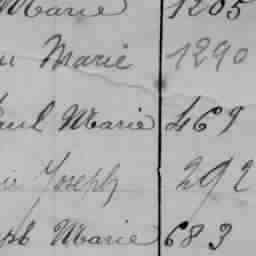 Marie 1205
Marie 1290
Paul Marie 469
Joseph 292
Marie 683